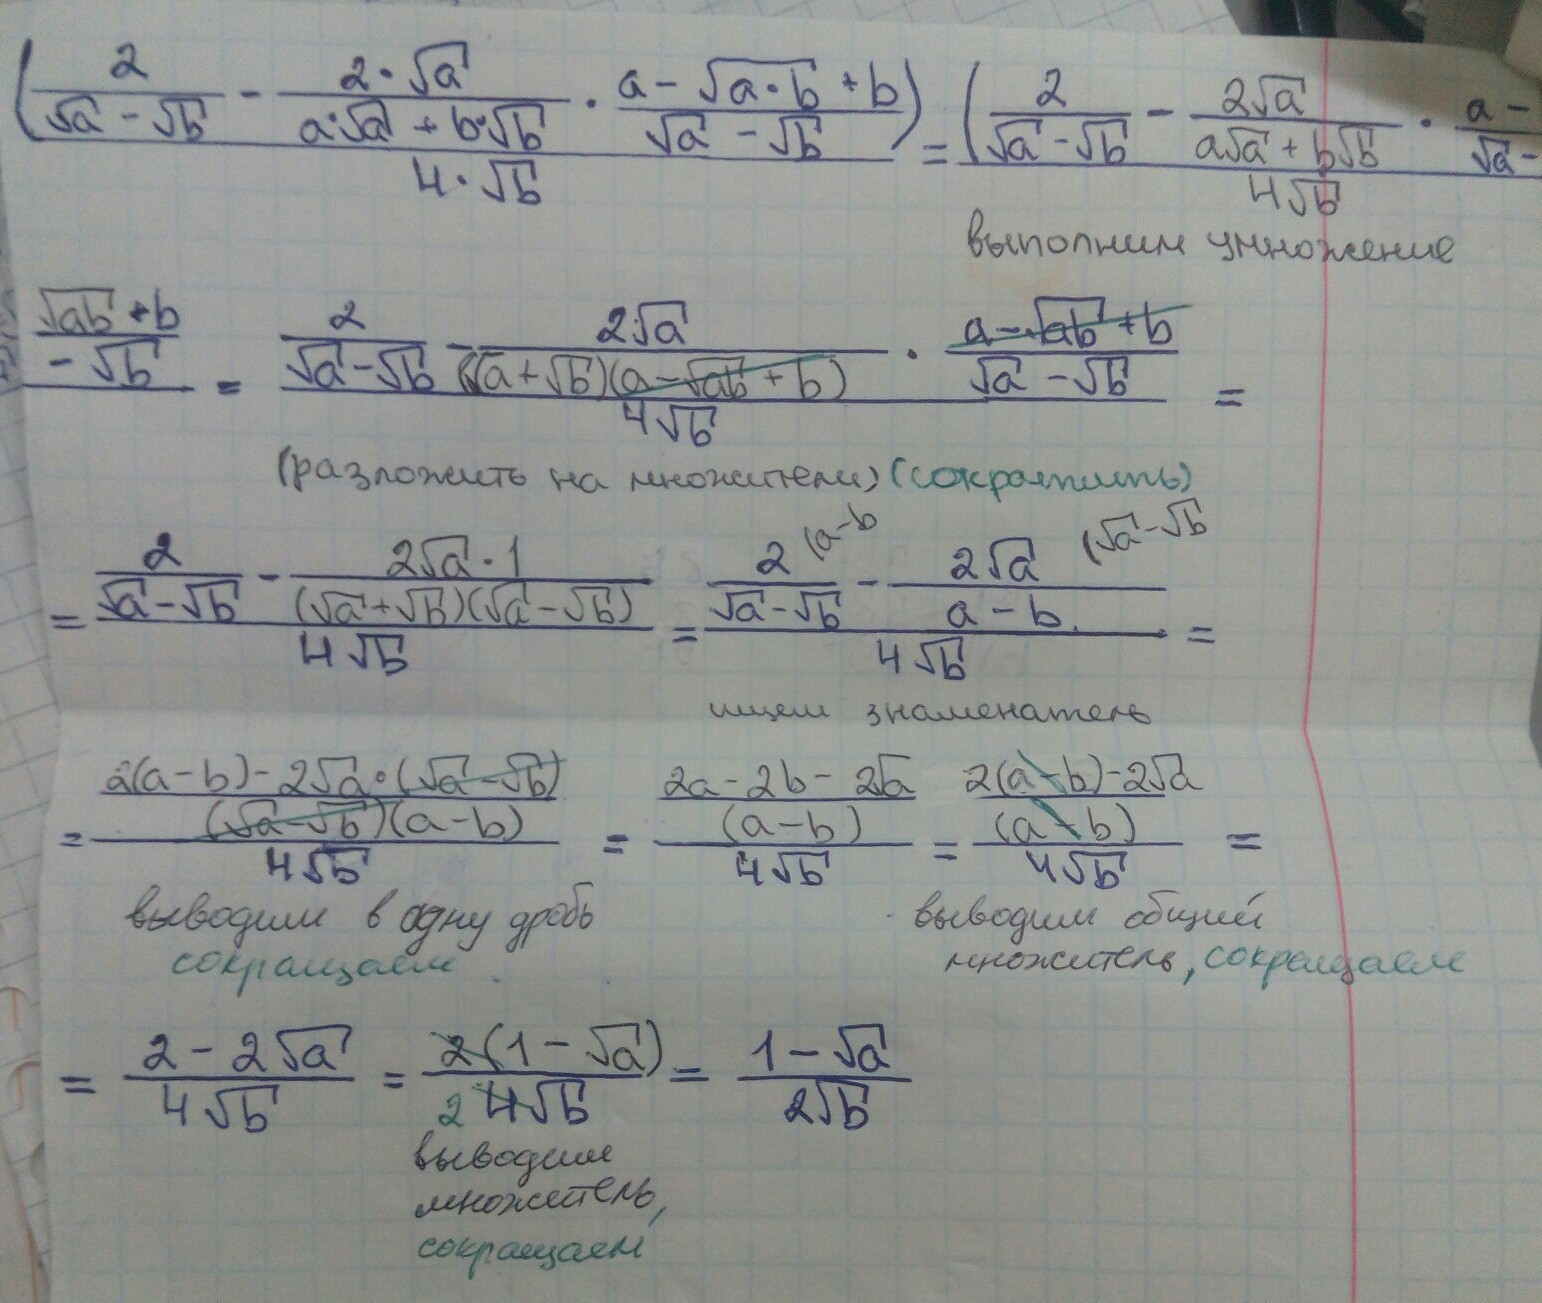 (2/(√a - √b) - (2·√a)/(a·√a + b·√b) · (a - √(a·b) + b)/(√a - √b)) / (4·√b) = (2/(√a - √b) - (2√a)/(a√a + b√b) · (a -)/(√a -) / (4√b)
выполним умножение
(√ab + b)/(- √b) = (2/(√a - √b) - (2√a)/((√a + √b)(a - √ab + b)) · (a - √ab + b)/(√a - √b)) / (4√b) =
(разложить на множители) (сократить)
= (2/(√a - √b) - (2√a · 1)/((√a + √b)(√a - √b))) / (4√b) = (2 (a-b/(√a - √b) - 2√a (√a - √b/(a - b)) / (4√b) =
ищем знаменатель
= ((2(a - b) - 2√a·(√a - √b))/((√a - √b)(a - b))) / (4√b) = ((2a - 2b - 2√a)/(a - b)) / (4√b) = ((2(a - b) - 2√a)/(a - b)) / (4√b) =
выводим в одну дробь выводим общий
сокращаем множитель, сокращаем
= (2 - 2√a)/(4√b) = (2(1 - √a))/(2 4√b) = (1 - √a)/(2√b)
выводим
множитель,
сокращаем